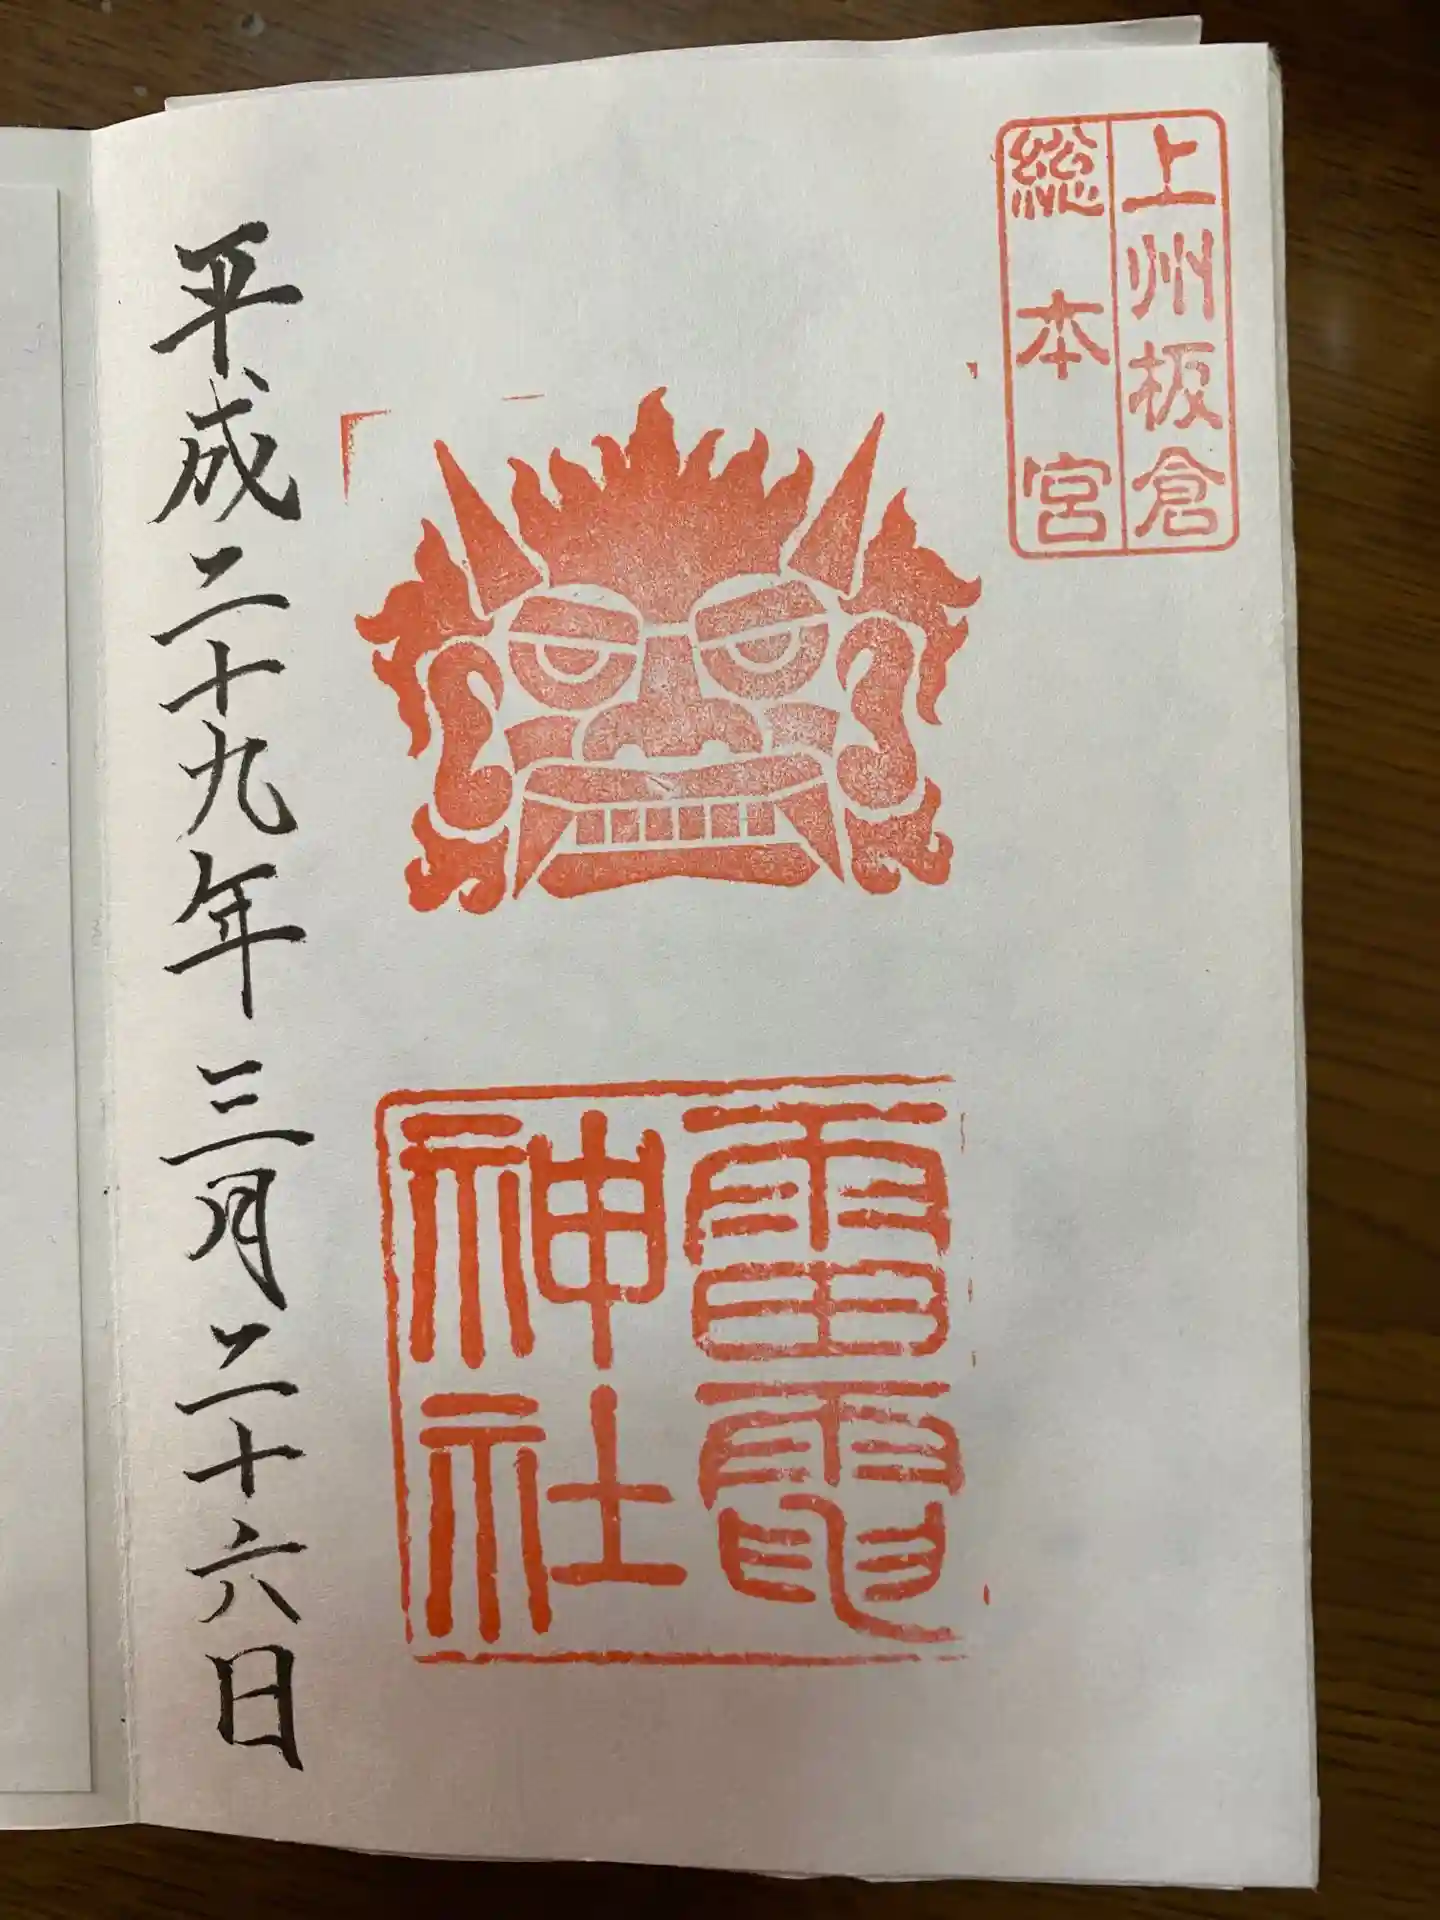 上州板倉
総本宮
雷電
神社
平成二十九年三月二十六日